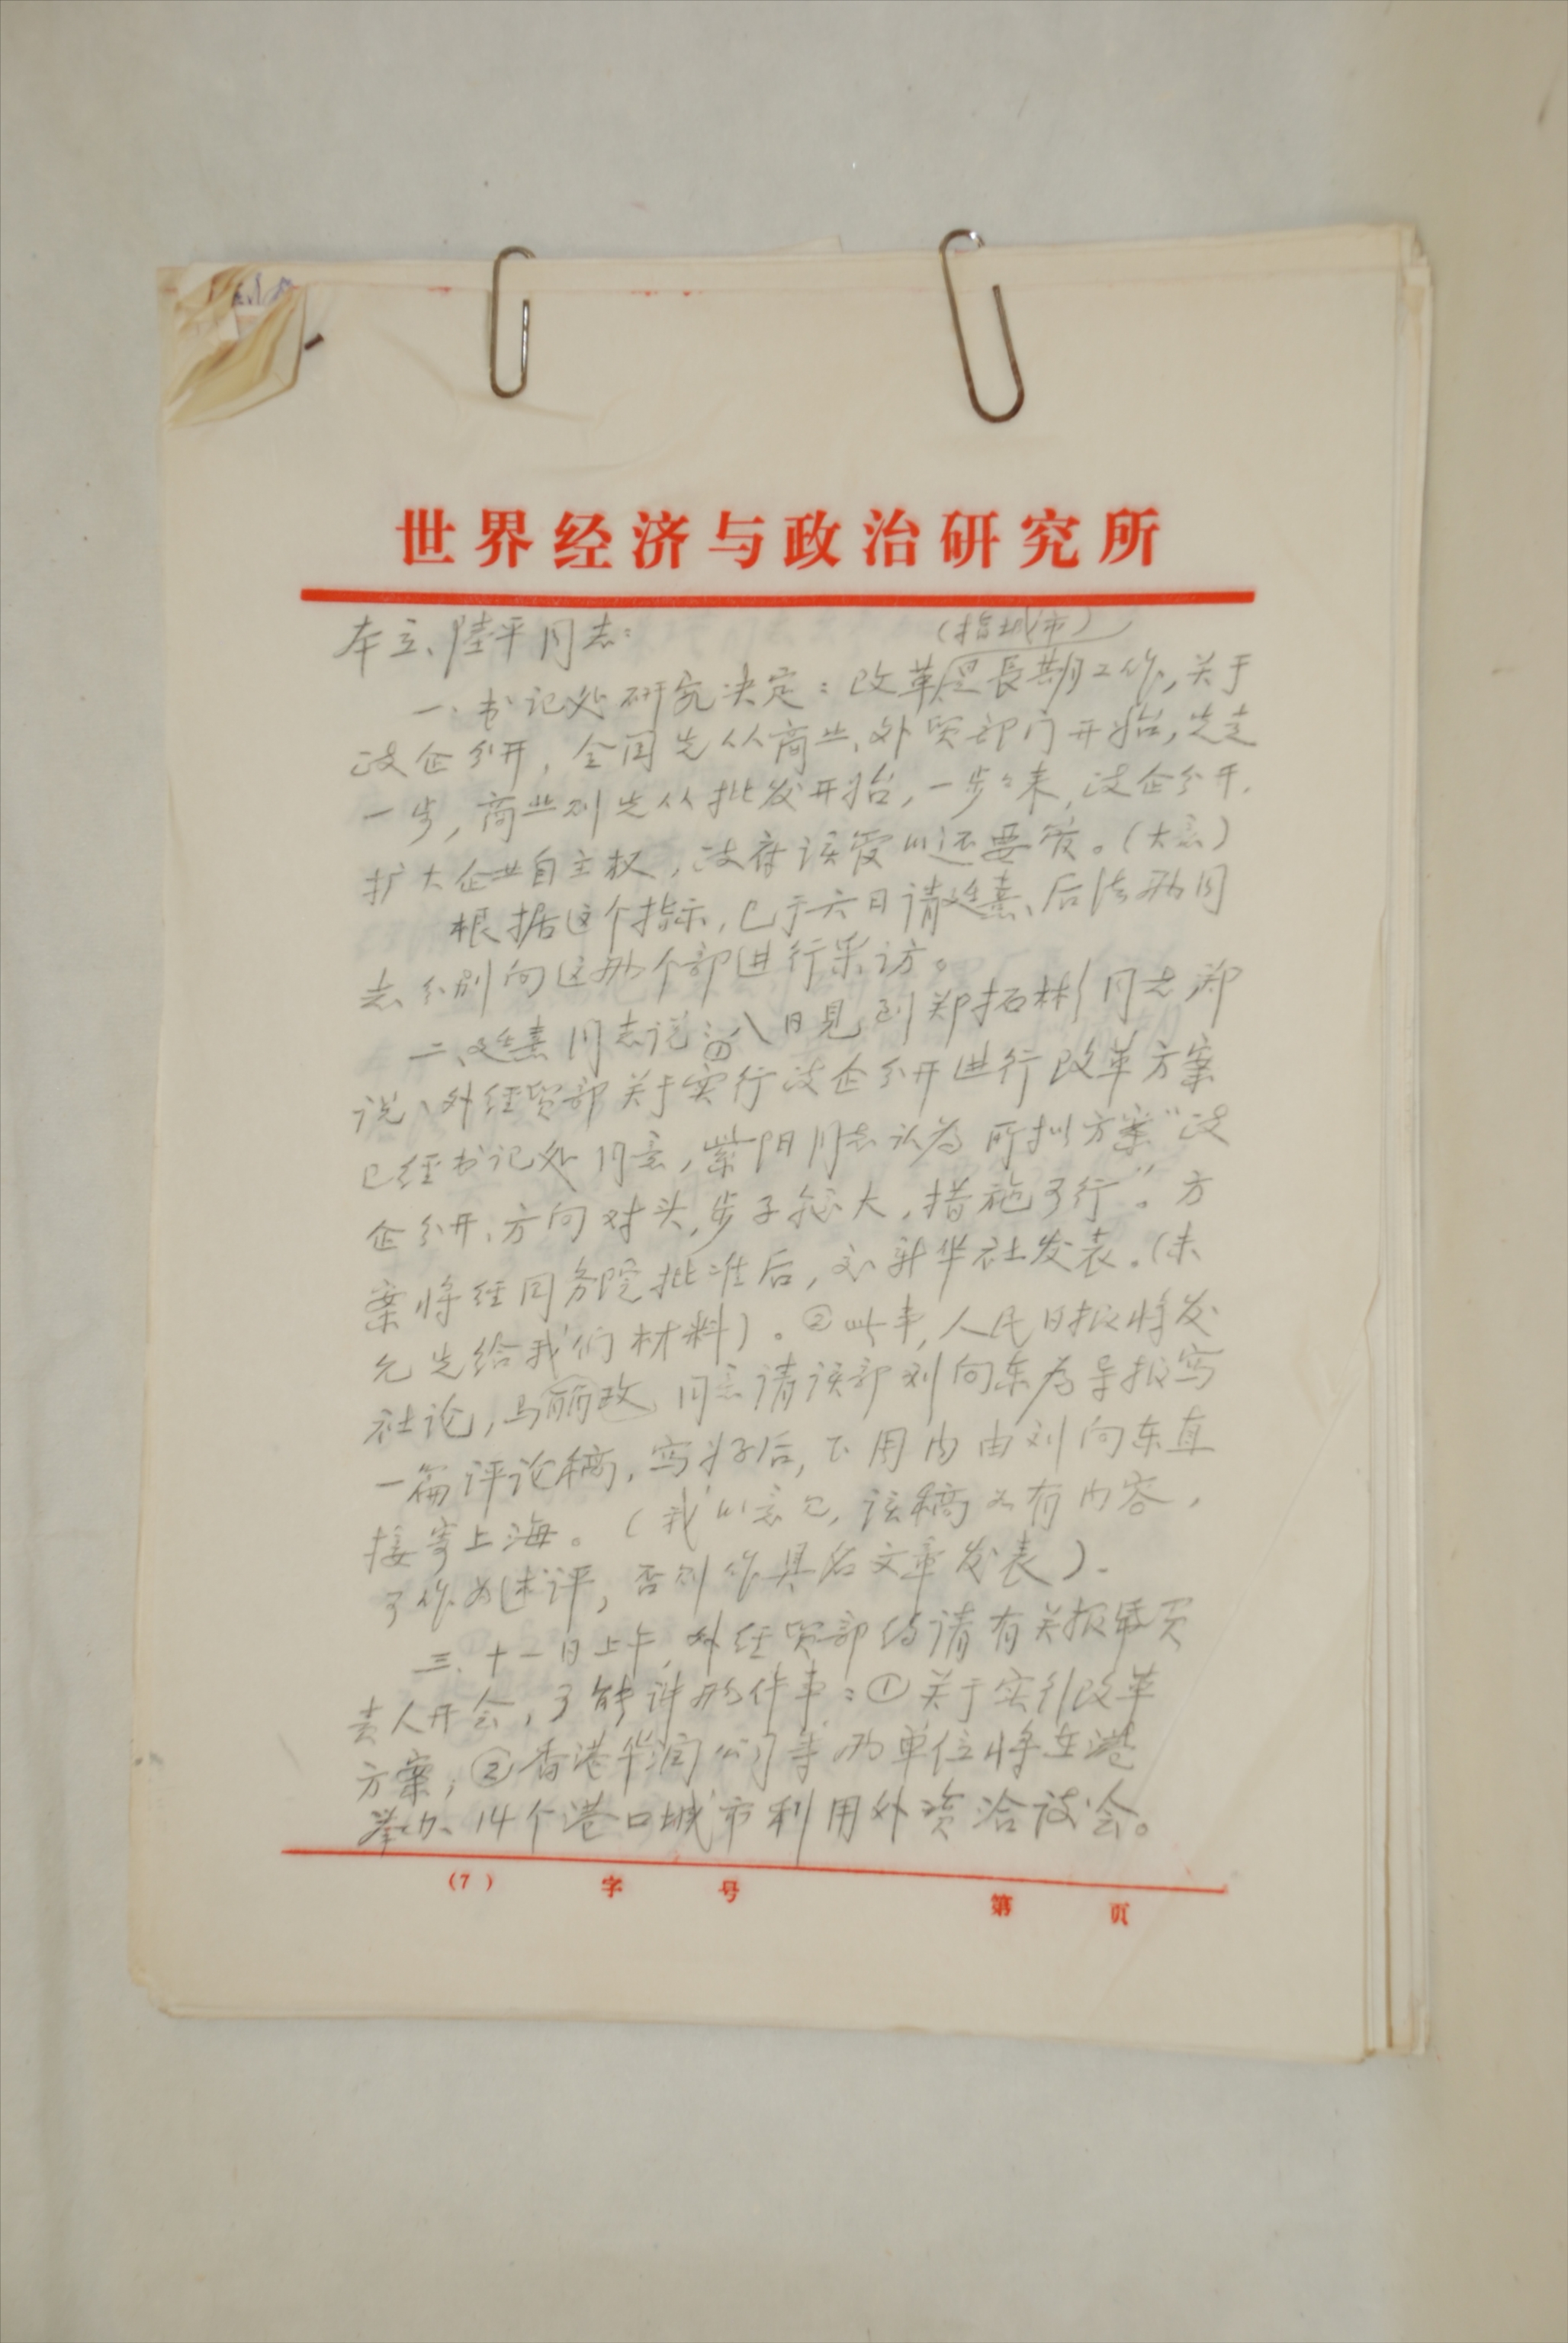 世界经济与政治研究所
本立、陸平同志：
（指城市）
一、书记处研究决定：改革是長期工作，关于
政企分开，全国先从商业、外贸部门开始，先走
一步，商业则先从批发开始，一步々来，政企分开，
扩大企业自主权，政府该管的还要管。（大意）
根据这个指示，已于六日请廷熹、后法两同
志分别向这两个部进行采访。
二、廷熹同志说：①八日見到郑拓彬同志 郑
说，外经贸部关于实行政企分开进行改革方案
已经书记处同意，紫阳同志认为所拟方案“政
企分开，方向对头，步子稳大，措施可行”。方
案将经国务院批准后，交新华社发表。（未
允先给我们材料）。②此事，人民日报将发
社论，马丽 同意请该部刘向东为导报写
一篇评论稿，写好后，下周内由刘向东直
接寄上海。（我的意见，该稿如有内容，
可作为述评，否则作具名文章发表）.
三、十一日上午，外经贸部约请有关报负
责人开会，可能讲两件事：①关于实行改革
方案；②香港华润公司等两单位将在港
举办14个港口城市利用外资洽谈会。
（7） 字 号 第 页